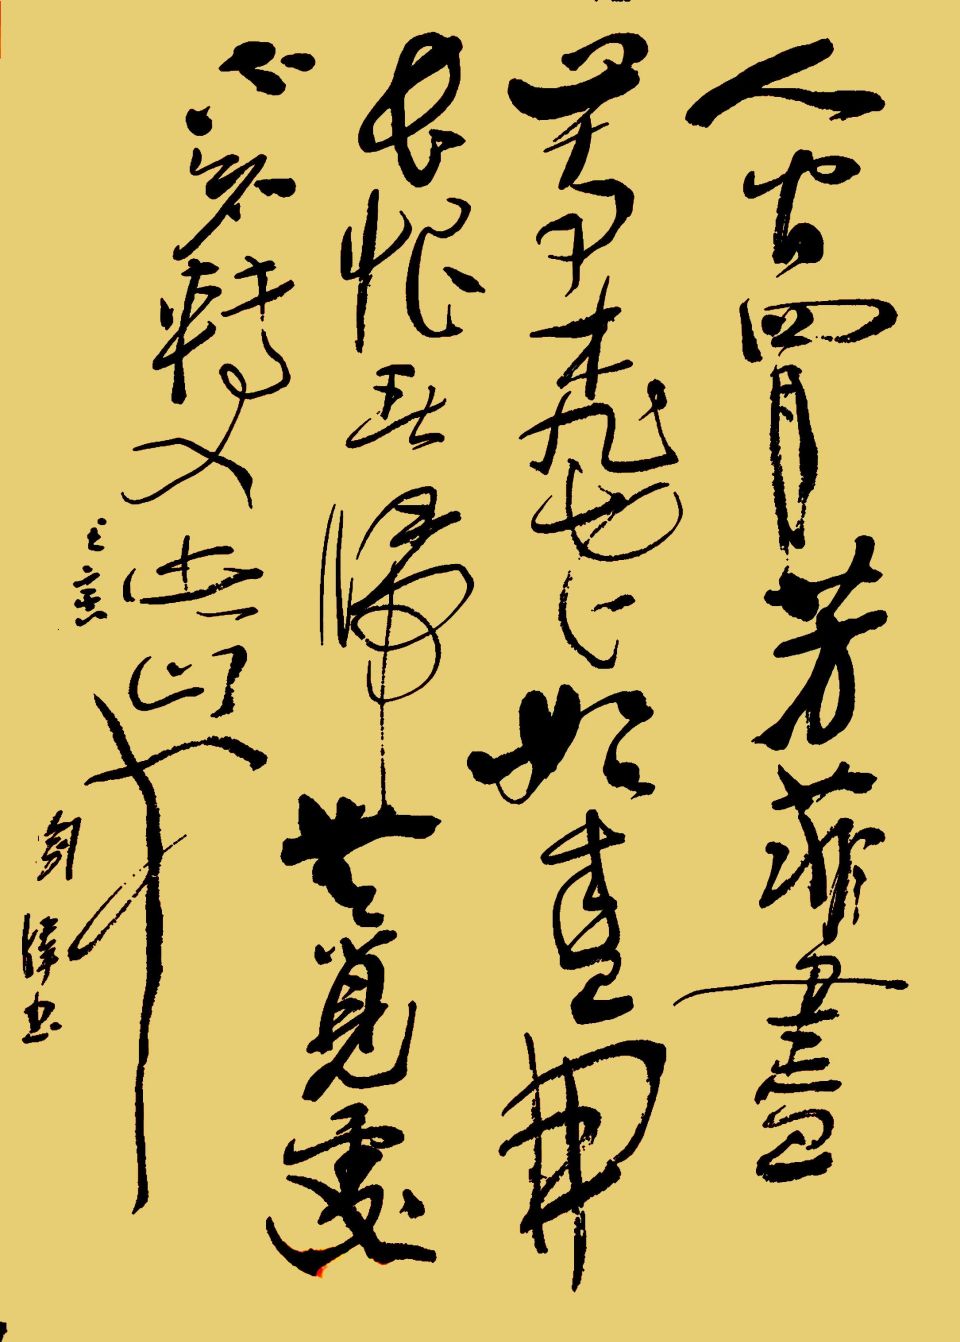 人間四月芳菲盡
山寺桃花始盛開
長恨春歸無覓處
不知轉入此中來
书